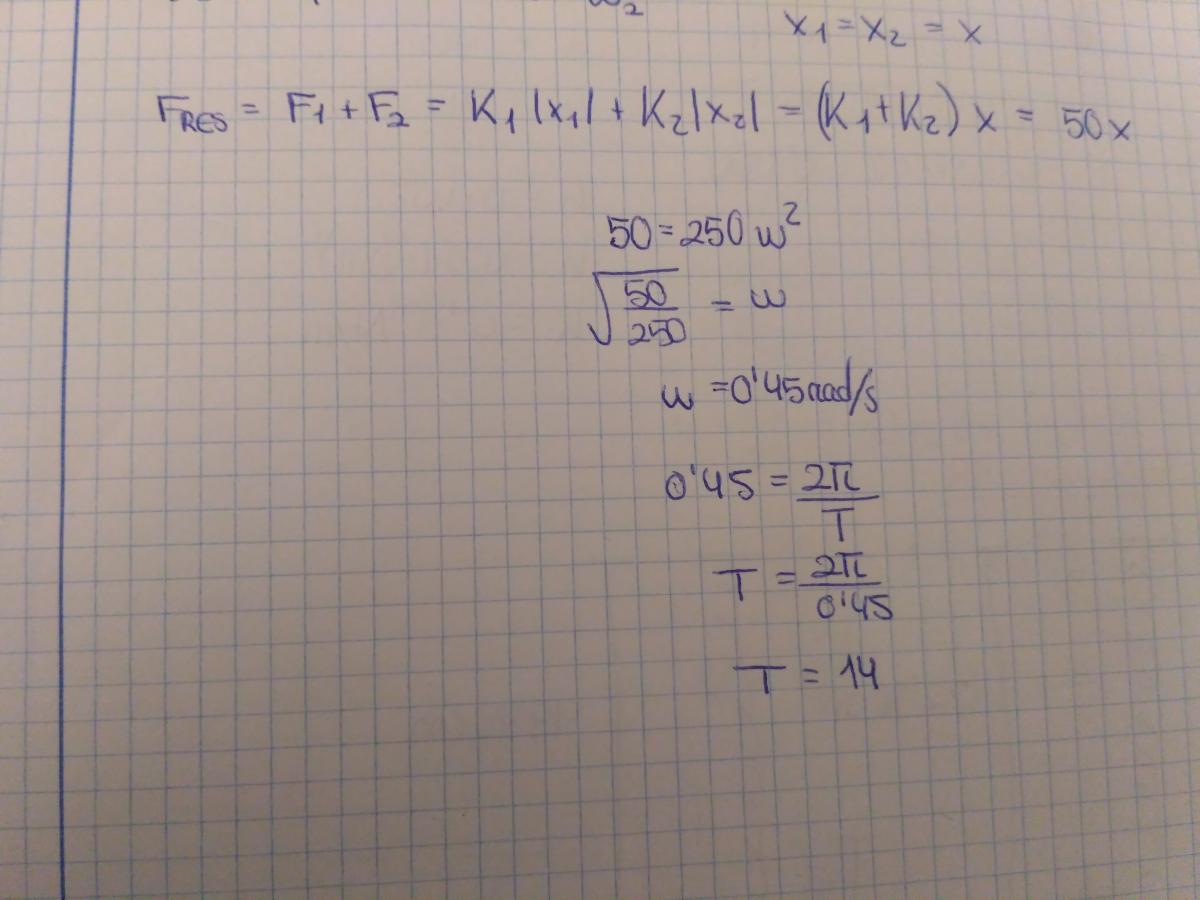 ω₂
x₁ = x₂ = x
F_RES = F₁ + F₂ = K₁ |x₁| + K₂|x₂| = (K₁+K₂) x = 50x
50 = 250 ω²
√(50/250) = ω
ω = 0'45 rad/s
0'45 = 2π/T
T = 2π/0'45
T = 14